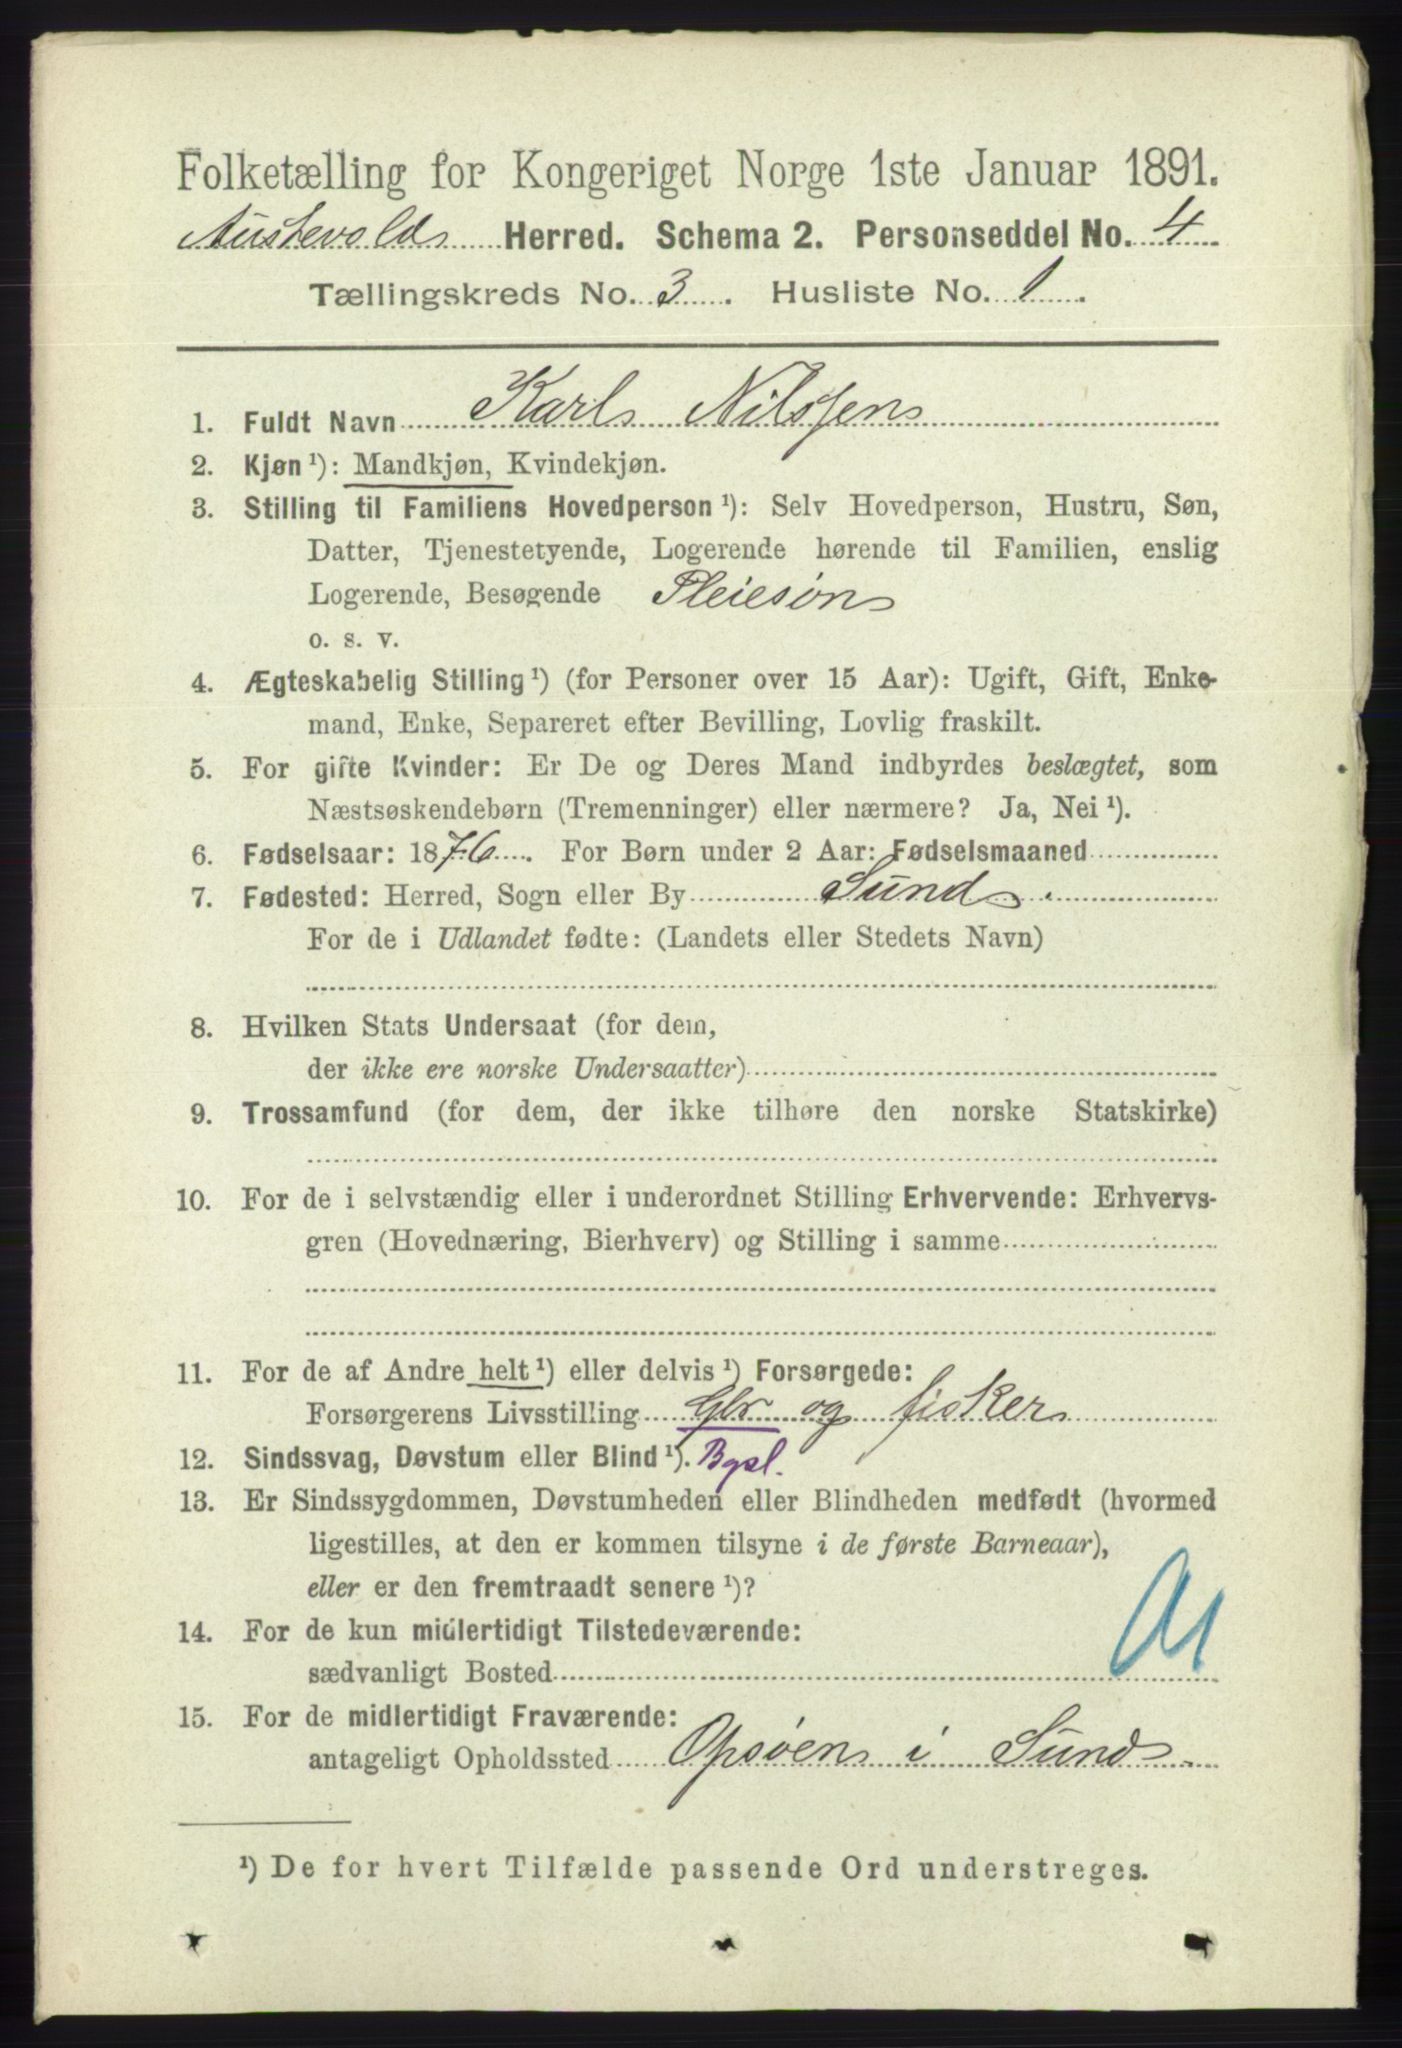 Folketælling for Kongeriget Norge 1ste Januar 1891.
Austevold Herred. Schema 2. Personseddel No. 4
Tællingskreds No. 3. Husliste No. 1.
1. Fuldt Navn Karl Nilssen
2. Kjøn ¹): Mandkjøn, Kvindekjøn.
3. Stilling til Familiens Hovedperson ¹): Selv Hovedperson, Hustru, Søn,
Datter, Tjenestetyende, Logerende hørende til Familien, enslig
Logerende, Besøgende Pleiesøn
o. s. v.
4. Ægteskabelig Stilling ¹) (for Personer over 15 Aar): Ugift, Gift, Enke-
mand, Enke, Separeret efter Bevilling, Lovlig fraskilt.
5. For gifte Kvinder: Er De og Deres Mand indbyrdes beslægtet, som
Næstsøskendebørn (Tremenninger) eller nærmere? Ja, Nei ¹).
6. Fødselsaar: 1876. For Børn under 2 Aar: Fødselsmaaned
7. Fødested: Herred, Sogn eller By Sund
For de i Udlandet fødte: (Landets eller Stedets Navn)
8. Hvilken Stats Undersaat (for dem,
der ikke ere norske Undersaatter)
9. Trossamfund (for dem, der ikke tilhøre den norske Statskirke)
10. For de i selvstændig eller i underordnet Stilling Erhvervende: Erhvervs-
gren (Hovednæring, Bierhverv) og Stilling i samme
11. For de af Andre helt ¹) eller delvis ¹) Forsørgede:
Forsørgerens Livsstilling Gbr og fisker
12. Sindssvag, Døvstum eller Blind ¹). Bgsl.
13. Er Sindssygdommen, Døvstumheden eller Blindheden medfødt (hvormed
ligestilles, at den er kommen tilsyne i de første Barneaar),
eller er den fremtraadt senere ¹)?
14. For de kun midlertidigt Tilstedeværende:
sædvanligt Bosted
15. For de midlertidigt Fraværende:
antageligt Opholdssted Opsøen i Sund
¹) De for hvert Tilfælde passende Ord understreges.